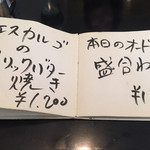 エスカルゴ
の
リックバター
焼き
¥1,200
本日のオード
盛合わ
¥1